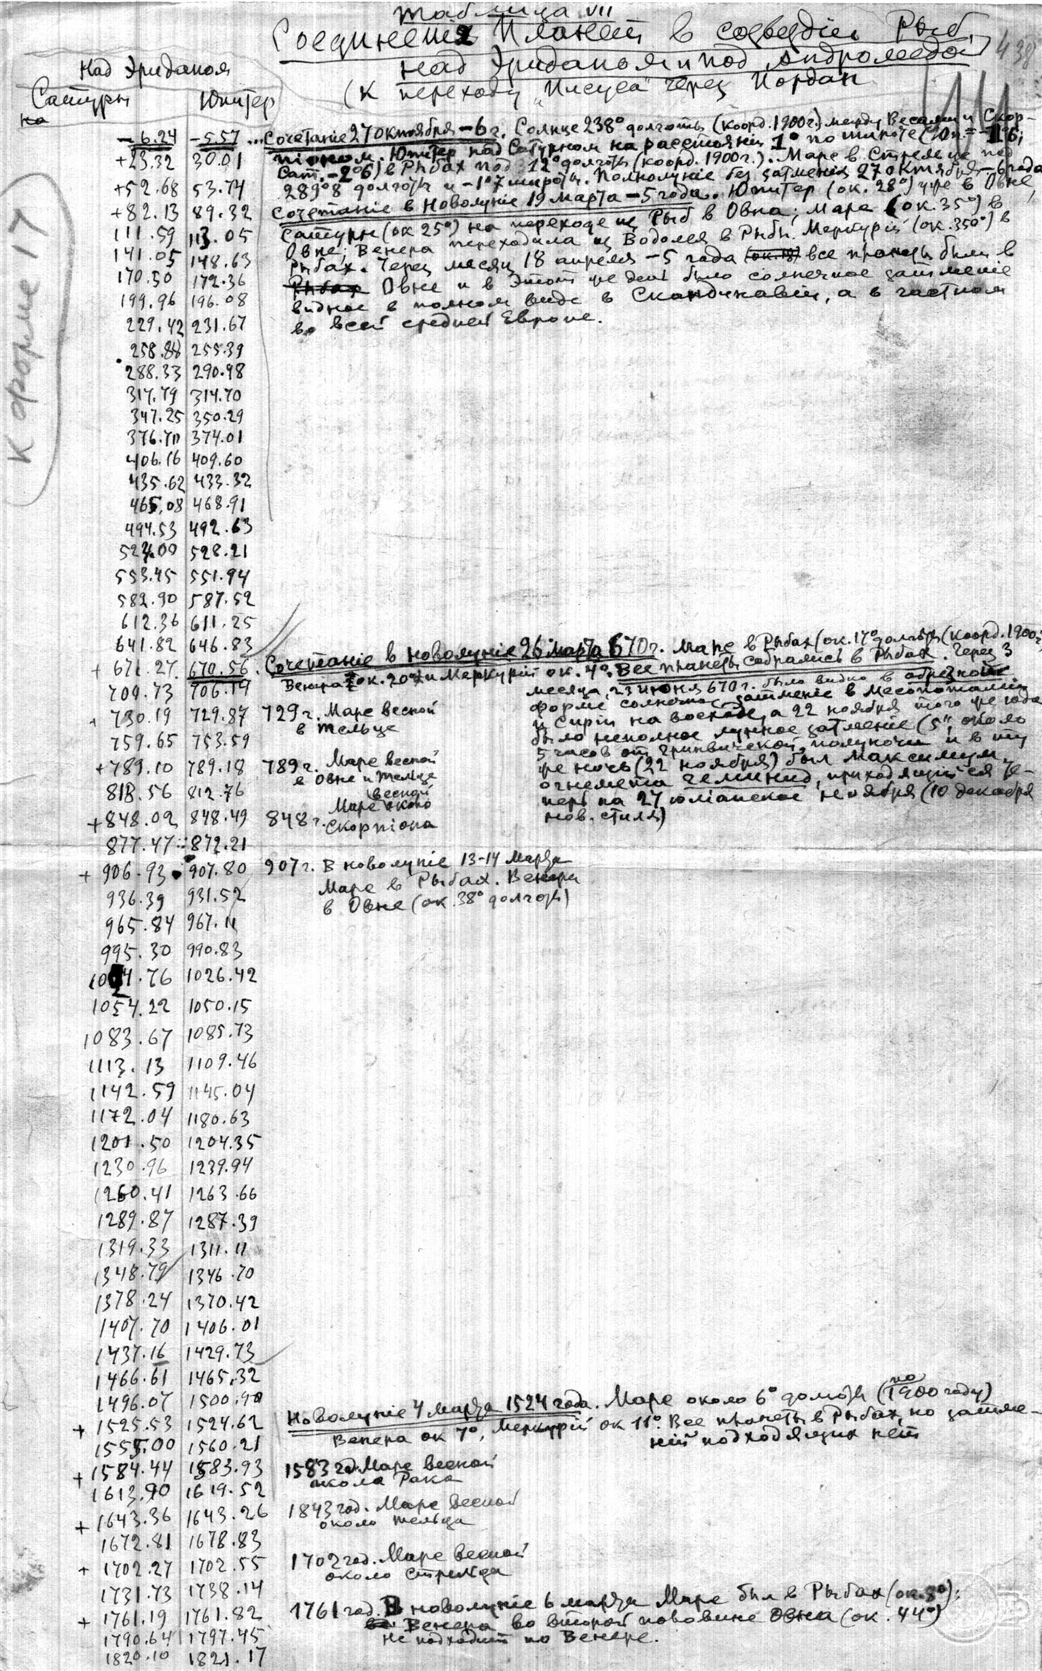 Таблица VII
Соединения Планет в созвездіи Рыб,
над Эриданом и под Андромедой
(К переходу „Іисуса" через Іордан
438
К форме 17
Над Эриданом
Сатурн Юпитер
на
-6.24 -5.57 ...Сочетаніе 27 октября -6 г. Солнце 238° долготы (коорд. 1900 г.) между Весами и Скор-
піоном. Юпитер над Сатурном на расстояніи 1° по широте (Юп. = -1°6;
+23.32 30.01 Сат. -2°6) в Рыбах под 12° долготы (коорд. 1900 г.). Марс в Стрельце под
+52.68 53.74 289°8 долготы и -1°7 широты. Полнолуніе без затменія 27 октября -6 года
+82.13 89.32 Сочетаніе в Новолуніе 19 марта -5 года. Юпитер (ок. 28°) уже в Овне,
111.59 113.05 Сатурн (ок 25°) на переходе из Рыб в Овна; Марс (ок. 35°) в
141.05 148.63 Овне; Венера переходила из Водолея в Рыбы. Меркурій (ок. 350°) в
170.50 172.36 Рыбах. Через месяц 18 апреля -5 года все планеты были в
199.96 196.08 Овне и в этот же день было солнечное затменіе
229.42 231.67 видное в полном виде в Скандинавіи, а в частном
258.88 255.39 во всей средней Европе.
288.33 290.98
317.79 314.70
347.25 350.29
376.70 374.01
406.16 409.60
435.62 433.32
465.08 468.91
494.53 492.63
524.00 528.21
553.45 551.94
582.90 587.52
612.36 611.25
641.82 646.83
+ 671.27 670.56 Сочетаніе в новолуніе 26 марта 670 г. Марс в Рыбах (ок. 17° долготы (коорд. 1900 г.
Венера ок. 20° и Меркурій ок. 4°. Все планеты собрались в Рыбах. Через 3
700.73 706.14 месяца 23 июня 670 г. было видно в
форме солнечное затменіе в Месопотаміи
+ 730.19 729.87 729 г. Марс весной
в Тельце
и Сиріи на восходе, а 22 ноября того же года
759.65 753.59 было неполное лунное затменіе (5", около
5 часов от гринвической полуночи и в ту
+789.10 789.18 789 г. Марс весной
в Овне и Тельце
же ночь (22 ноября) был Максимум
818.56 812.76 огнемета Геминид, приходящійся те-
+848.02 848.49 848 г. Марс весной около
Скорпіона
перь на 27 юліанское ноября (10 декабря
нов. стиля)
877.47 872.21
+ 906.93 907.80 907 г. В новолуніе 13-14 Марта
936.39 931.52 Марс в Рыбах. Венера
в Овне (ок. 38° долготы)
965.84 967.11
995.30 990.83
1024.76 1026.42
1054.22 1050.15
1083.67 1085.73
1113.13 1109.46
1142.59 1145.04
1172.04 1180.63
1201.50 1204.35
1230.96 1239.94
1260.41 1263.66
1289.87 1287.39
1319.33 1311.11
1348.79 1346.70
1378.24 1370.42
1407.70 1406.01
1437.16 1429.73
1466.61 1465.32
1496.07 1500.90
+ 1525.53 1524.62 Новолуніе 4 марта 1524 года. Марс около 6° долготы (по 1900 году)
1555.00 1560.21 Венера ок 7°, Меркурій ок 11° Все планеты в Рыбах, но затме-
ній подходящих нет
+ 1584.44 1583.93 1583 год Марс весной
около Рака
1613.90 1619.52
+ 1643.36 1643.26 1843 год. Марс весной
около тельца
1672.81 1678.83
+ 1702.27 1702.55 1702 год. Марс весной
около стрельца
1731.73 1738.14
+ 1761.19 1761.82 1761 год. В новолуніе 6 марта Марс был в Рыбах (ок. 8°):
Венера во второй половине Овна (ок. 44°)
1790.64 1797.45 Не подходит по Венере.
1820.10 1821.17